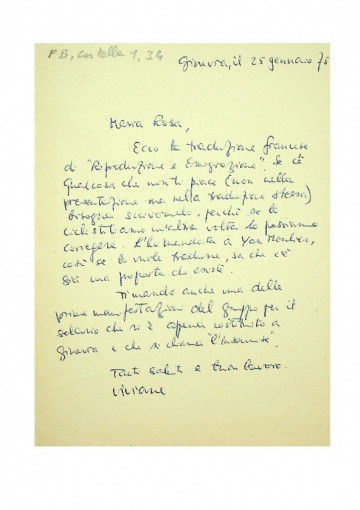 F B, cartella 1, 34
Ginevra, il 25 gennaio 75
Maria Rosa,
Ecco la traduzione francese
di "Riproduzione e Emigrazione". Se c'è
qualcosa che non ti piace (non nella
presentazione ma nella traduzione stessa)
bisogna scrivermelo, perché se lo
ciclostiliamo un'altra volta lo possiamo
correggere. L'ho mandata a Yan
così se lo vuole tradurre, sa che c'è
già una proposta che esiste.
Ti mando anche una delle
prime manifestazioni del gruppo per il
salario che si è appena costituito a
Ginevra e che si chiama "l'Insoumise".
Tanti saluti e buon lavoro.
Viviane